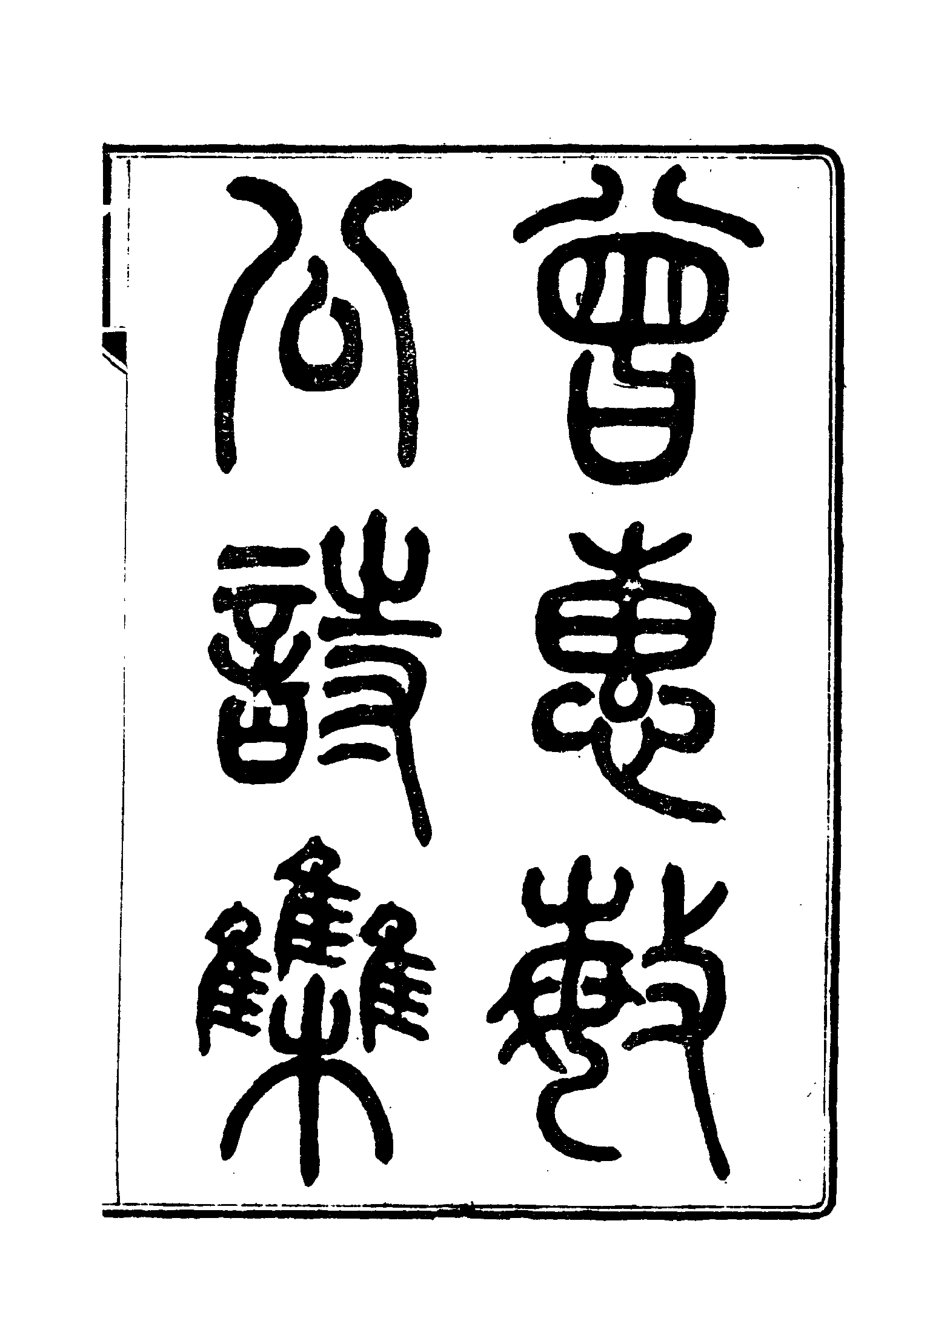 曾惠敏
公詩集